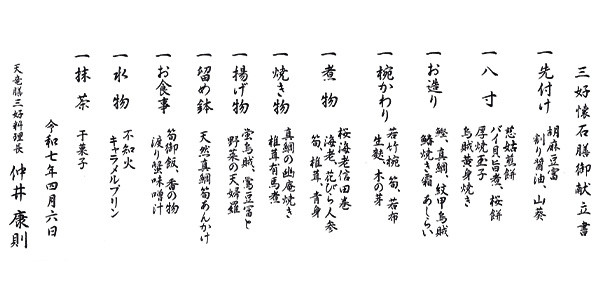 三好懐石膳御献立書
一 先付け
胡麻豆富
割り醤油、山葵
一 八寸
慈姑煎餅
バイ貝旨煮、桜餅
厚焼玉子
烏賊黄身焼き
一 お造り
鰹、真鯛、紋甲烏賊
鰆焼き霜 あしらい
一 椀かわり
若竹椀 筍、若布
生麩、木の芽
一 煮物
桜海老信田巻
海老、花びら人参
筍、椎茸、青身
一 焼き物
真鯛の幽庵焼き
椎茸有馬煮
一 揚げ物
蛍烏賊、鴬豆富と
野菜の天婦羅
一 留め鉢
天然真鯛筍あんかけ
一 お食事
筍御飯、香の物
渡り蟹味噌汁
一 水物
不知火
キャラメルプリン
一 抹茶
干菓子
令和七年四月六日
天竜膳三好料理長 仲井康則